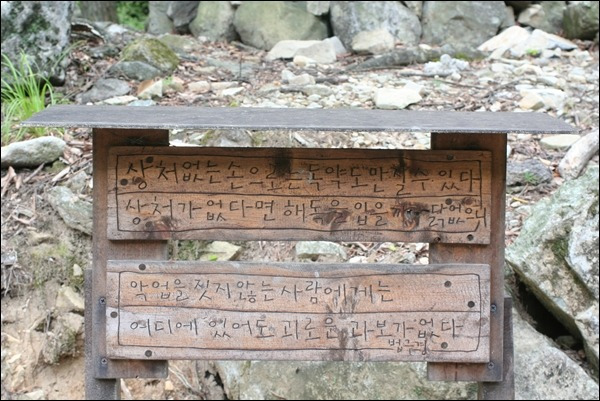 상처없는손으로는독약도만질수있다
상처가없다면해독을입을 까닭없이,
악업을 짓지 않는 사람에게는
어디에 있어도 괴로운 과보가 없다
법구경